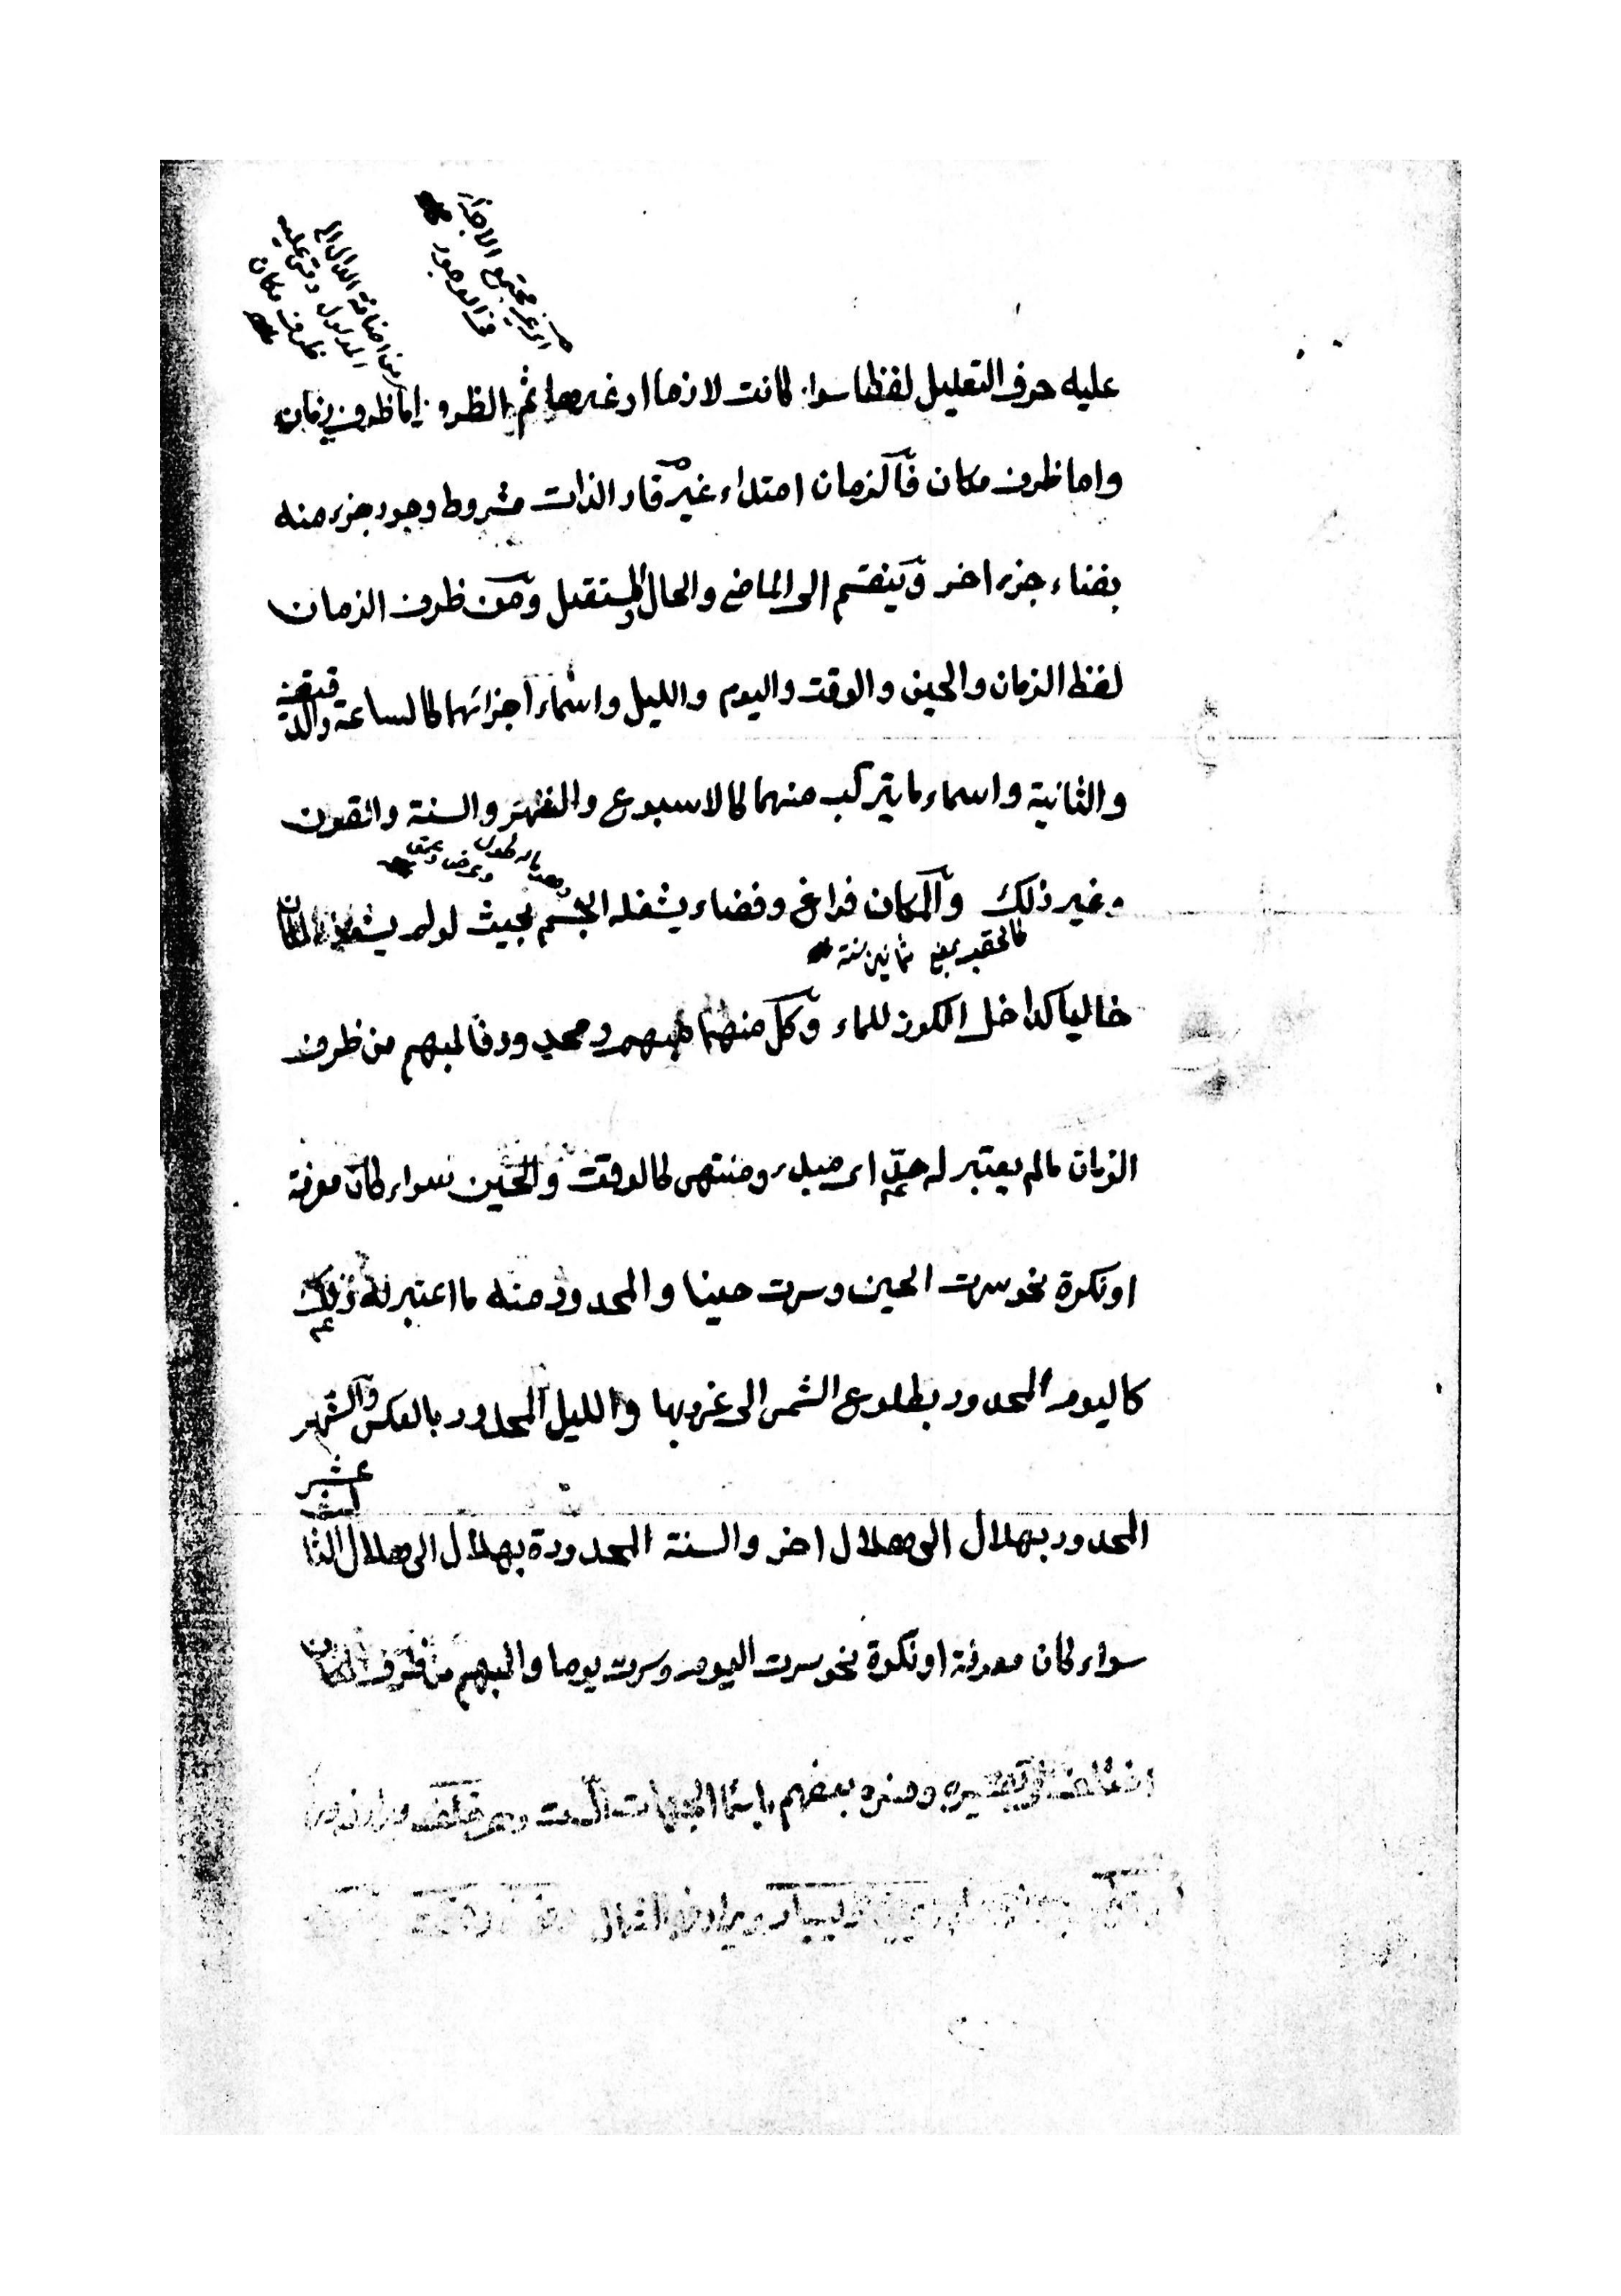 اى غير مجتمع الاجزاء
فى الوجود
من اضافة الدال الى
المدلول وقس عليه
ظرف مكان
عليه حرف التعليل لفظا سواء كانت لازما او غيرها ثم الظرف اما ظرف زمان
واما ظرف مكان فالزمان امتداء غير قار الذات مشروط وجود جزء منه
بفناء جزء اخر وينقسم الى الماضى والحال والمستقبل ومن ظرف الزمان
لفظ الزمان والحين والوقت واليوم والليل واسماء اجزائهما كالساعة والدقيقة
والثانية واسماء ما يتركب منهما كالاسبوع والشهر والسنة والقرن
وهو ما له طول
وعرض وعمق
وغير ذلك والمكان فراغ وفضاء يشغله الجسم بحيث لو لم يشغله لكان
كالحقب بمعنى ثمانين سنة
خاليا كداخل الكوز للماء وكل منهما مبهم ومحدود فالمبهم من ظرف
الزمان مالم يعتبر له حد اى مبدء ومنتهى كالوقت والحين سواء كان معرفة
او نكرة نحو سرت الحين وسرت حينا والمحدود منه ما اعتبر له ذلك
كاليوم المحدود بطلوع الشمس الى غروبها والليل المحدود بالعكس والشهر
المحدود بهلال الى هلال اخر والسنة المحدودة بهلال الى هلال الثانى عشر
سواء كان معرفة او نكرة نحو سرت اليوم وسرت يوما والمبهم من ظرف المكان
اختلف فى تفسيره وفسره بعضهم باسماء الجهات الست وهى خلف ويرادفها
ويسار ويرادفه الشمال